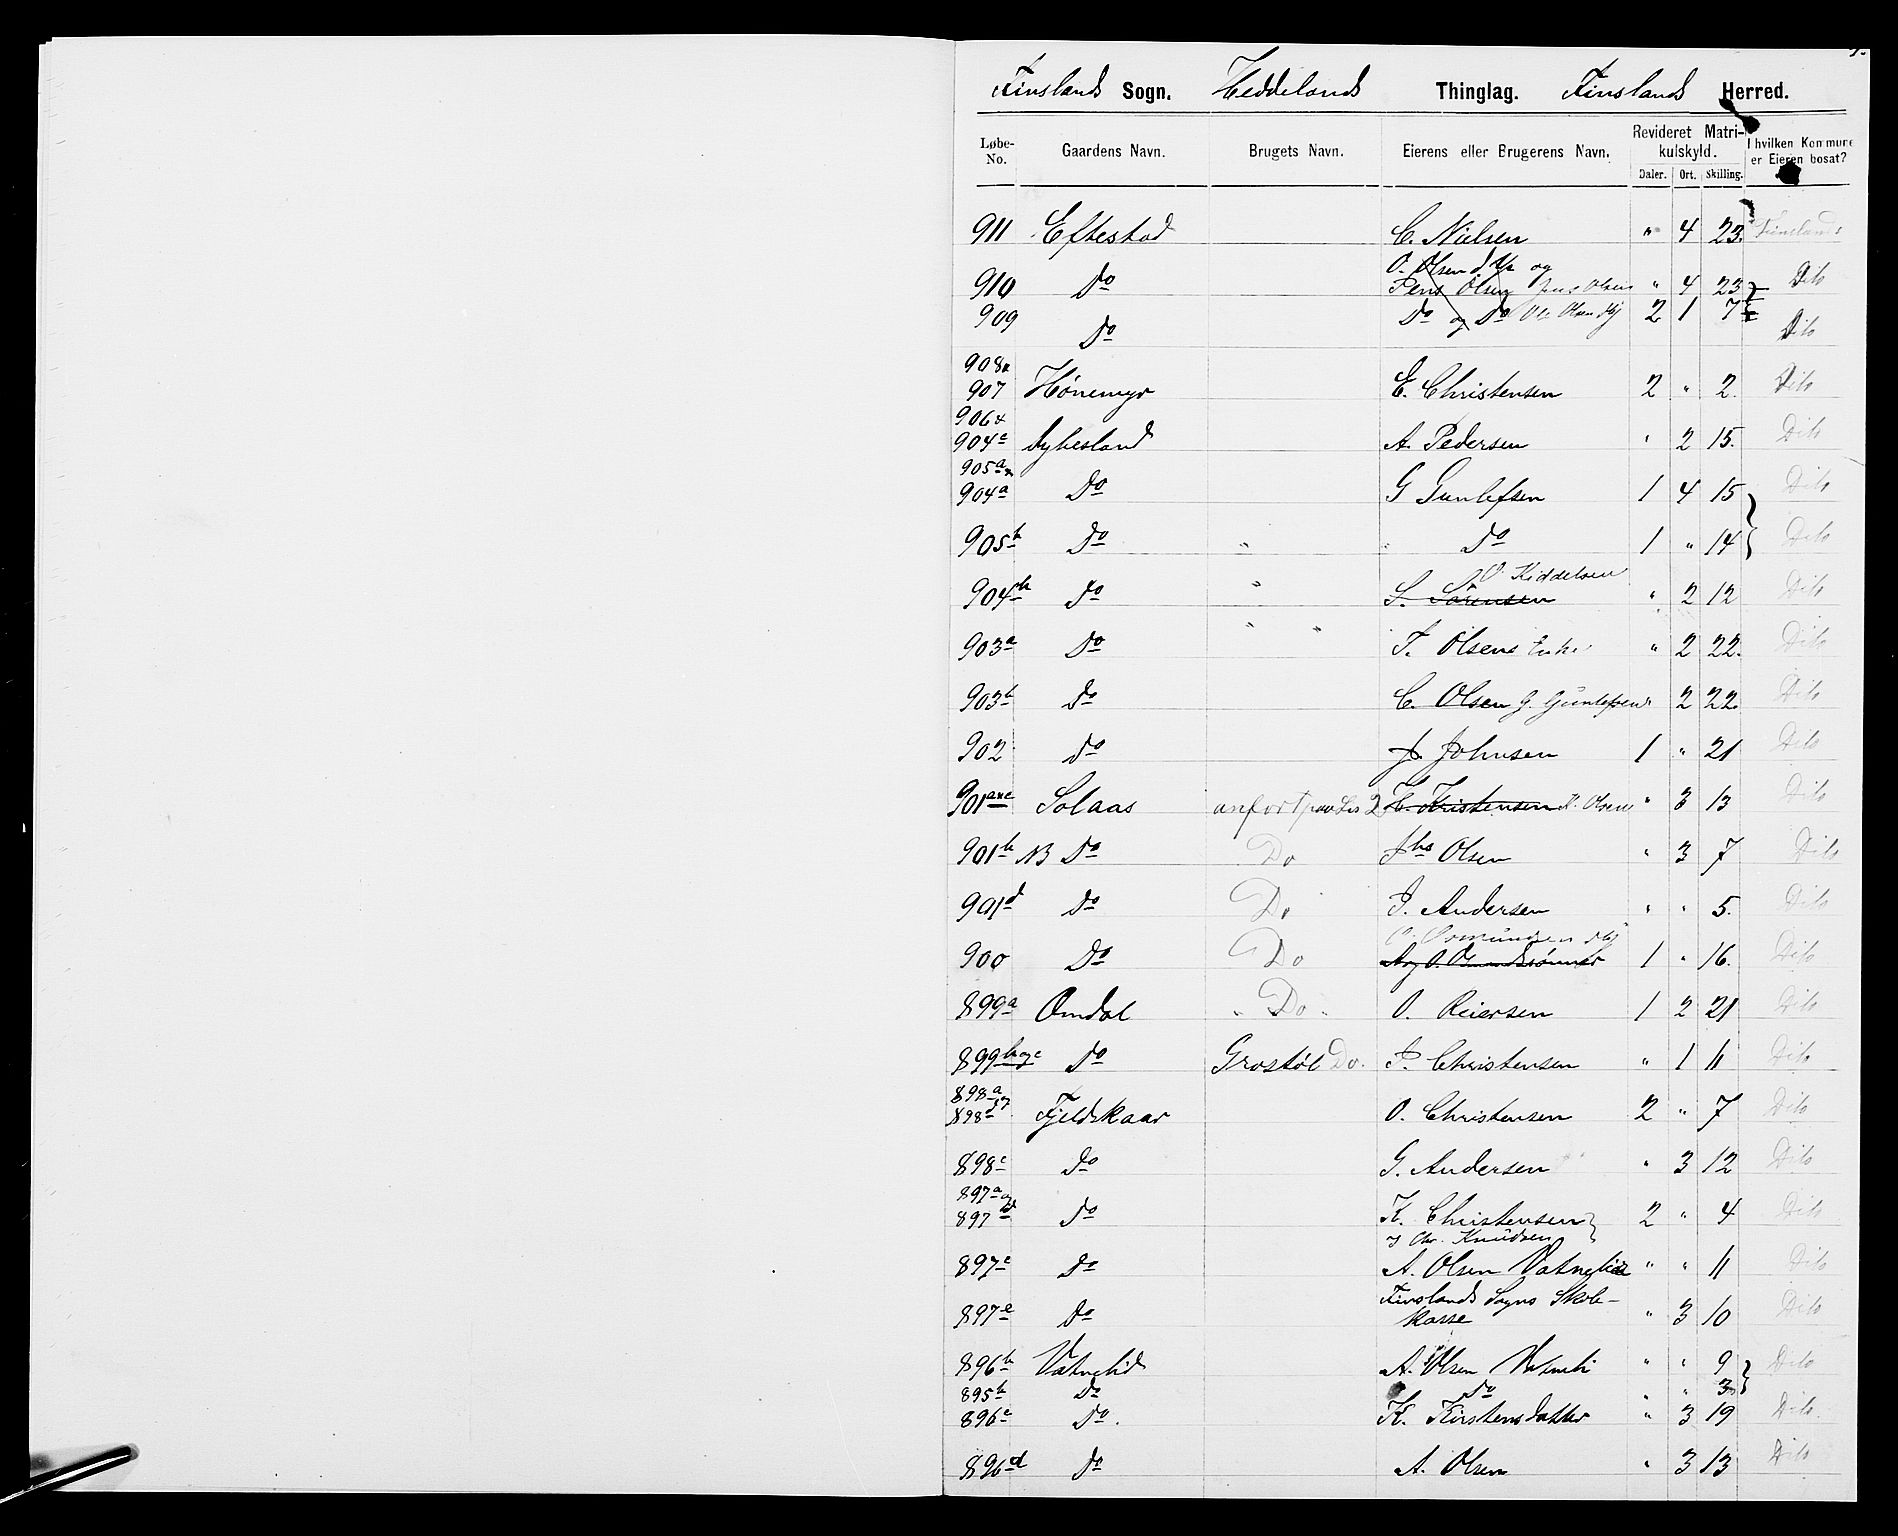 Finslands Sogn. Heddelands Thinglag. Finslands Herred.
Løbe-No. Gaardens Navn. Brugets Navn. Eierens eller Brugerens Navn. Revideret Matrikulskyld. Daler. Ort. Skilling. I hvilken Kommune er Eieren bosat?
911 Eftestad C. Nielsen " 4 23. Finslands
O. Olsen og
910 Do Jens Olsen Jens Olsen " 4 23 Dito
909 Do Do og Do Ole Olsen 2 1 7 Dito
908 &
907 Hønemyr E. Christensen 2 " 2. Dito
906 &
904c Dybesland A. Pedersen " 2 15. Dito
905a &
904a Do G Gunlefsen 1 4 15 Dito
905b Do " " Do 1 " 14 Dito
O. Kiddelsen
904b Do " S. Sørensen " 2 12 Dito
903a Do " " T. Olsens Enke " 2 22. Dito
903b Do C. Olsen G. Gunlefsen " 2 22. Dito
902 Do J. Johnsen 1 " 21 Dito
901 Solaas anført paa Lis 2 C. Kristensen K. Olsen " 3 13 Dito
901b NB Do Do Jhs Olsen " 3 7 Dito
901d Do Do J. Andersen " " 5. Dito
O. Osmundsen
900 Do Do 1 " 16. Dito
899a Omdal " Do " O. Reiersen 1 2 21 Dito
899b og c Do Grostøl Do. P. Christensen " 1 11 Dito
898a og
898d Fjeldskaar O. Christensen 2 " 7 Dito
898c Do G. Andersen " 3 12 Dito
897a og
897b Do K. Christensen 2 " 4 Dito
og Chr. Knudsen
897c Do A. Olsen Vatnelid " " 11 Dito
Finslands Sogns Skole-
897e Do kasse " 3 10 Dito
896b Vatnelid A. Olsen Vatneli " " 9 Dito
895b Do Do " " 3
896c Do. K. Kirstensdatter " 3 19 Dito.
896d Do A. Olsen " 3 13 Dito